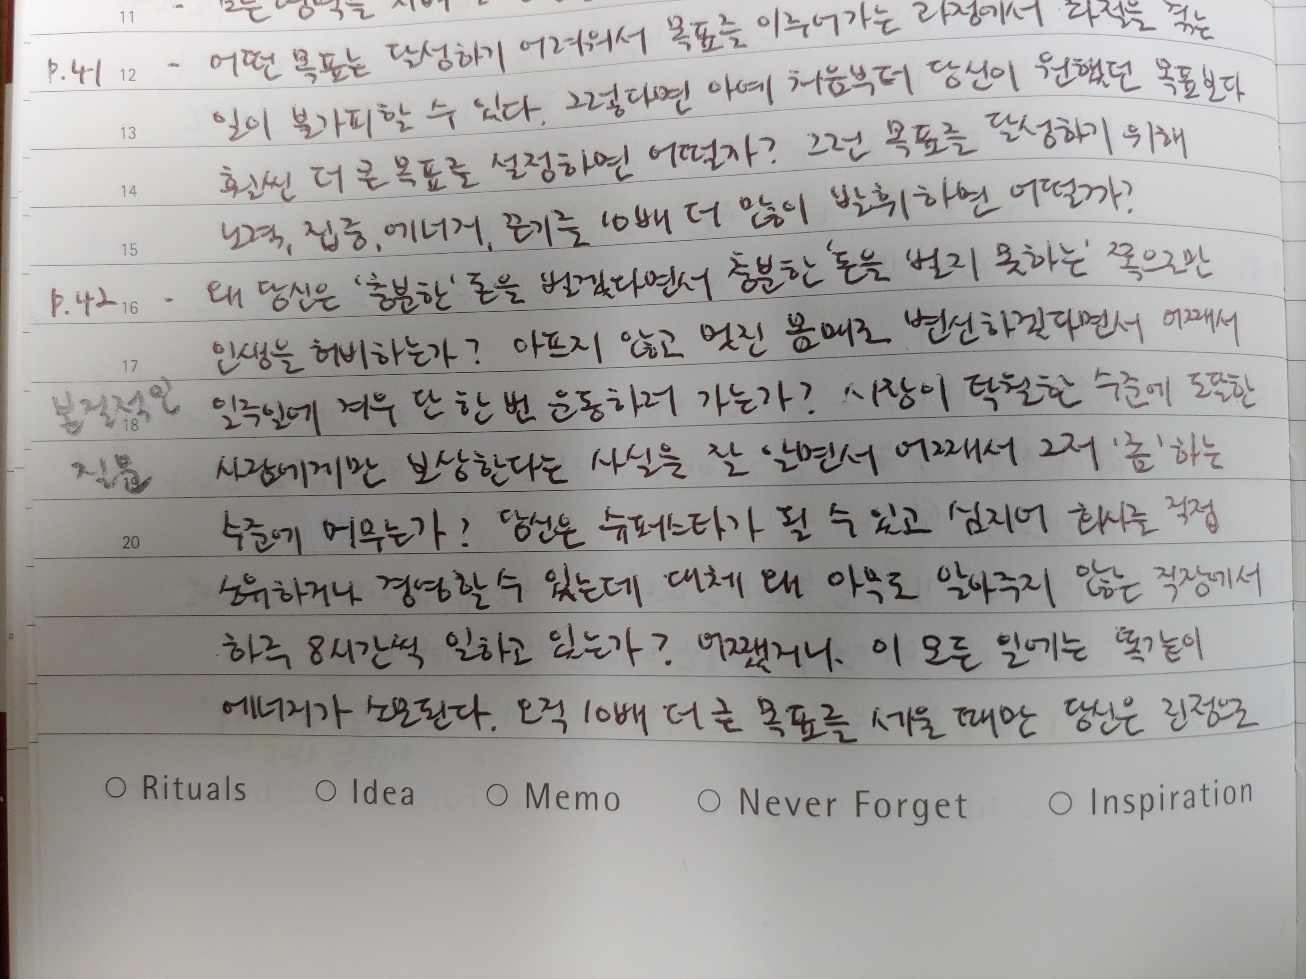 11 - 모든 영역을 지배
p.41 12 - 어떤 목표는 달성하기 어려워서 목표를 이루어가는 과정에서 좌절을 겪는
13 일이 불가피할 수 있다. 그렇다면 아예 처음부터 당신이 원했던 목표보다
14 훨씬 더 큰 목표를 설정하면 어떨까? 그런 목표를 달성하기 위해
15 노력, 집중, 에너지, 끈기를 10배 더 많이 발휘하면 어떨까?
p.42 16 - 왜 당신은 '충분한' 돈을 벌겠다면서 충분한 '돈을 벌지 못하는' 쪽으로만
17 인생을 허비하는가? 아프지 않고 멋진 몸매로 변신하겠다면서 어째서
본질적인 18 일주일에 겨우 단 한 번 운동하러 가는가? 시장이 탁월한 수준에 도달한
질문 시장에게만 보상한다는 사실을 잘 알면서 어째서 그저 '좀' 하는
20 수준에 머무는가? 당신은 슈퍼스타가 될 수 있고 심지어 회사를 직접
소유하거나 경영할 수 있는데 대체 왜 아무도 알아주지 않는 직장에서
하루 8시간씩 일하고 있는가? 어쨌거나. 이 모든 일에는 똑같이
에너지가 소모된다. 오직 10배 더 큰 목표를 세울 때만 당신은 진정으로
○ Rituals ○ Idea ○ Memo ○ Never Forget ○ Inspiration